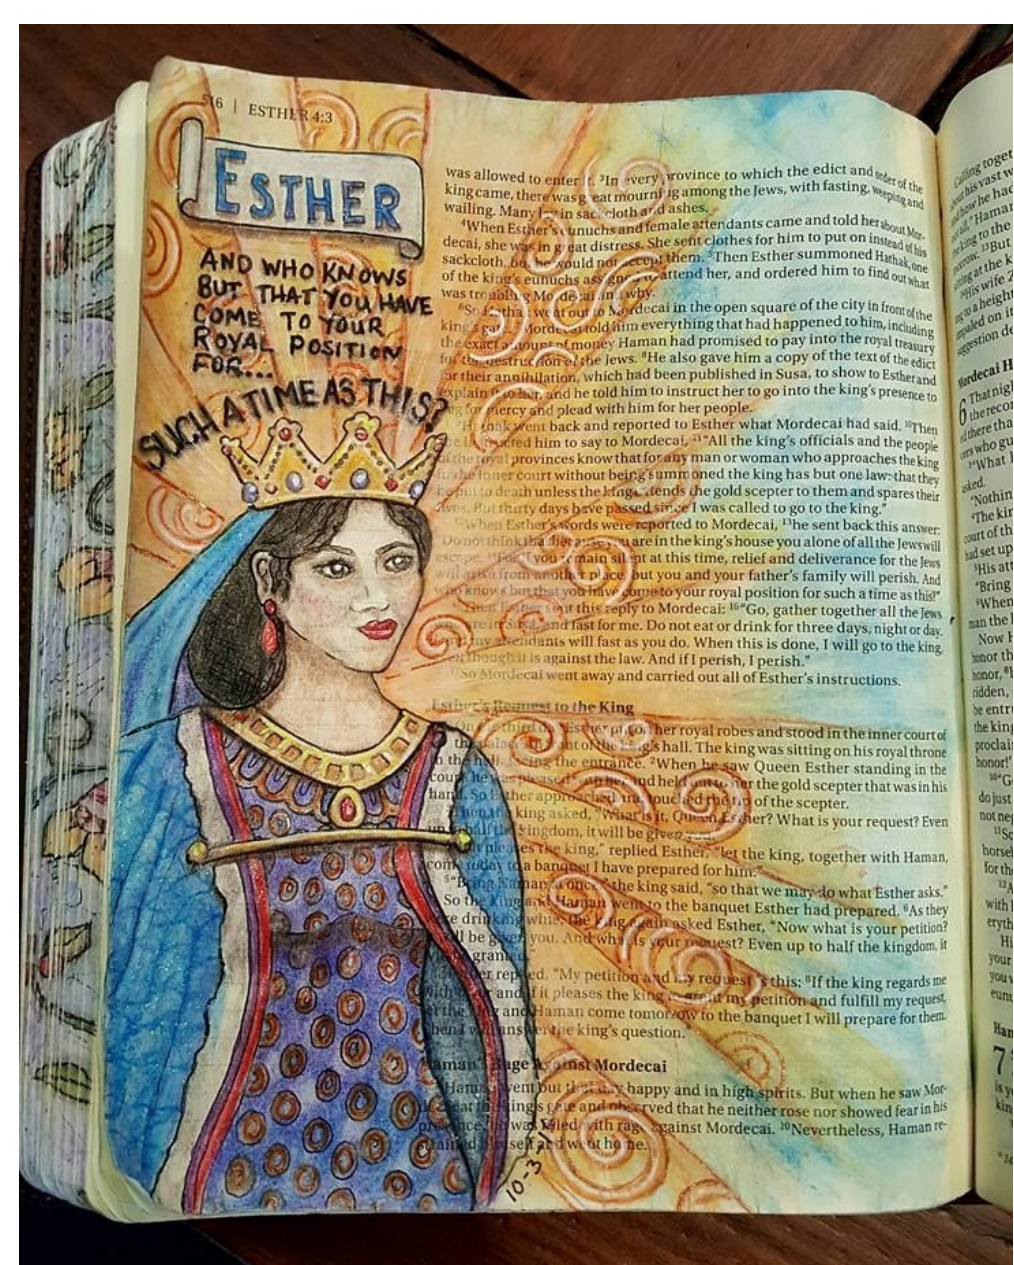 516 | ESTHER 4:3
ESTHER
AND WHO KNOWS
BUT THAT YOU HAVE
COME TO YOUR
ROYAL POSITION
FOR...
SUCH A TIME AS THIS?
was allowed to enter it. 3In every province to which the edict and order of the
king came, there was great mourning among the Jews, with fasting, weeping and
wailing. Many lay in sackcloth and ashes.
4When Esther's eunuchs and female attendants came and told her about Mor-
decai, she was in great distress. She sent clothes for him to put on instead of his
sackcloth, but he would not accept them. 5Then Esther summoned Hathak, one
of the king's eunuchs assigned to attend her, and ordered him to find out what
was troubling Mordecai and why.
6So Hathak went out to Mordecai in the open square of the city in front of the
king's gate. 7Mordecai told him everything that had happened to him, including
the exact amount of money Haman had promised to pay into the royal treasury
for the destruction of the Jews. 8He also gave him a copy of the text of the edict
for their annihilation, which had been published in Susa, to show to Esther and
explain it to her, and he told him to instruct her to go into the king's presence to
beg for mercy and plead with him for her people.
9Hathak went back and reported to Esther what Mordecai had said. 10Then
she instructed him to say to Mordecai, 11"All the king's officials and the people
of the royal provinces know that for any man or woman who approaches the king
in the inner court without being summoned the king has but one law: that they
be put to death unless the king extends the gold scepter to them and spares their
lives. But thirty days have passed since I was called to go to the king."
12When Esther's words were reported to Mordecai, 13he sent back this answer:
"Do not think that because you are in the king's house you alone of all the Jews will
escape. 14For if you remain silent at this time, relief and deliverance for the Jews
will arise from another place, but you and your father's family will perish. And
who knows but that you have come to your royal position for such a time as this?"
15Then Esther sent this reply to Mordecai: 16"Go, gather together all the Jews
who are in Susa, and fast for me. Do not eat or drink for three days, night or day.
I and my attendants will fast as you do. When this is done, I will go to the king,
even though it is against the law. And if I perish, I perish."
17So Mordecai went away and carried out all of Esther's instructions.
Esther's Request to the King
On the third day Esther put on her royal robes and stood in the inner court of
the palace, in front of the king's hall. The king was sitting on his royal throne
in the hall, facing the entrance. 2When he saw Queen Esther standing in the
court, he was pleased with her and held out to her the gold scepter that was in his
hand. So Esther approached and touched the tip of the scepter.
3Then the king asked, "What is it, Queen Esther? What is your request? Even
up to half the kingdom, it will be given you."
4"If it pleases the king," replied Esther, "let the king, together with Haman,
come today to a banquet I have prepared for him."
5"Bring Haman at once," the king said, "so that we may do what Esther asks."
So the king and Haman went to the banquet Esther had prepared. 6As they
were drinking wine, the king again asked Esther, "Now what is your petition?
It will be given you. And what is your request? Even up to half the kingdom, it
will be granted."
7Esther replied, "My petition and my request is this: 8If the king regards me
with favor and if it pleases the king to grant my petition and fulfill my request,
let the king and Haman come tomorrow to the banquet I will prepare for them.
Then I will answer the king's question."
Haman's Rage Against Mordecai
9Haman went out that day happy and in high spirits. But when he saw Mor-
decai at the king's gate and observed that he neither rose nor showed fear in his
presence, he was filled with rage against Mordecai. 10Nevertheless, Haman re-
strained himself and went home.
10-3